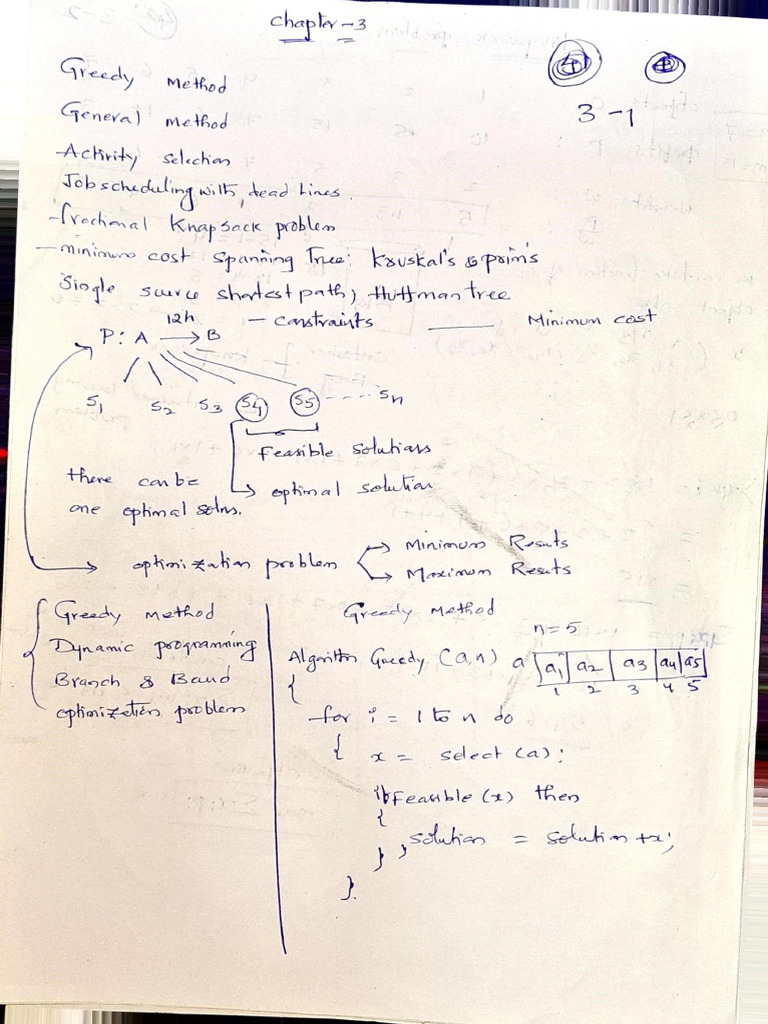 chapter-3
3-1
Greedy method
General method
Activity selection
Job scheduling with dead Lines.
fractional Knapsack problem
minimum cost Spanning Tree: Kruskal's & prim's
Single source shortest path, Huffman tree
P: A 12h → B - constraints — Minimum cost
S1 S2 S3 S4 S5 ---- Sn
Feasible solutions
there can be
optimal solution
one optimal solns.
optimization problem
Minimum Resuts
Maximum Resuts
Greedy method
Dynamic programming
Branch & Baud
optimization problem
Greedy method
n=5
Algorithm Greedy (a,n) a a1 a2 a3 a4 a5
1 2 3 4 5
{
for i = 1 to n do
{ x = select (a);
if Feasible (x) then
{
solution = solution +x;
} }
}.